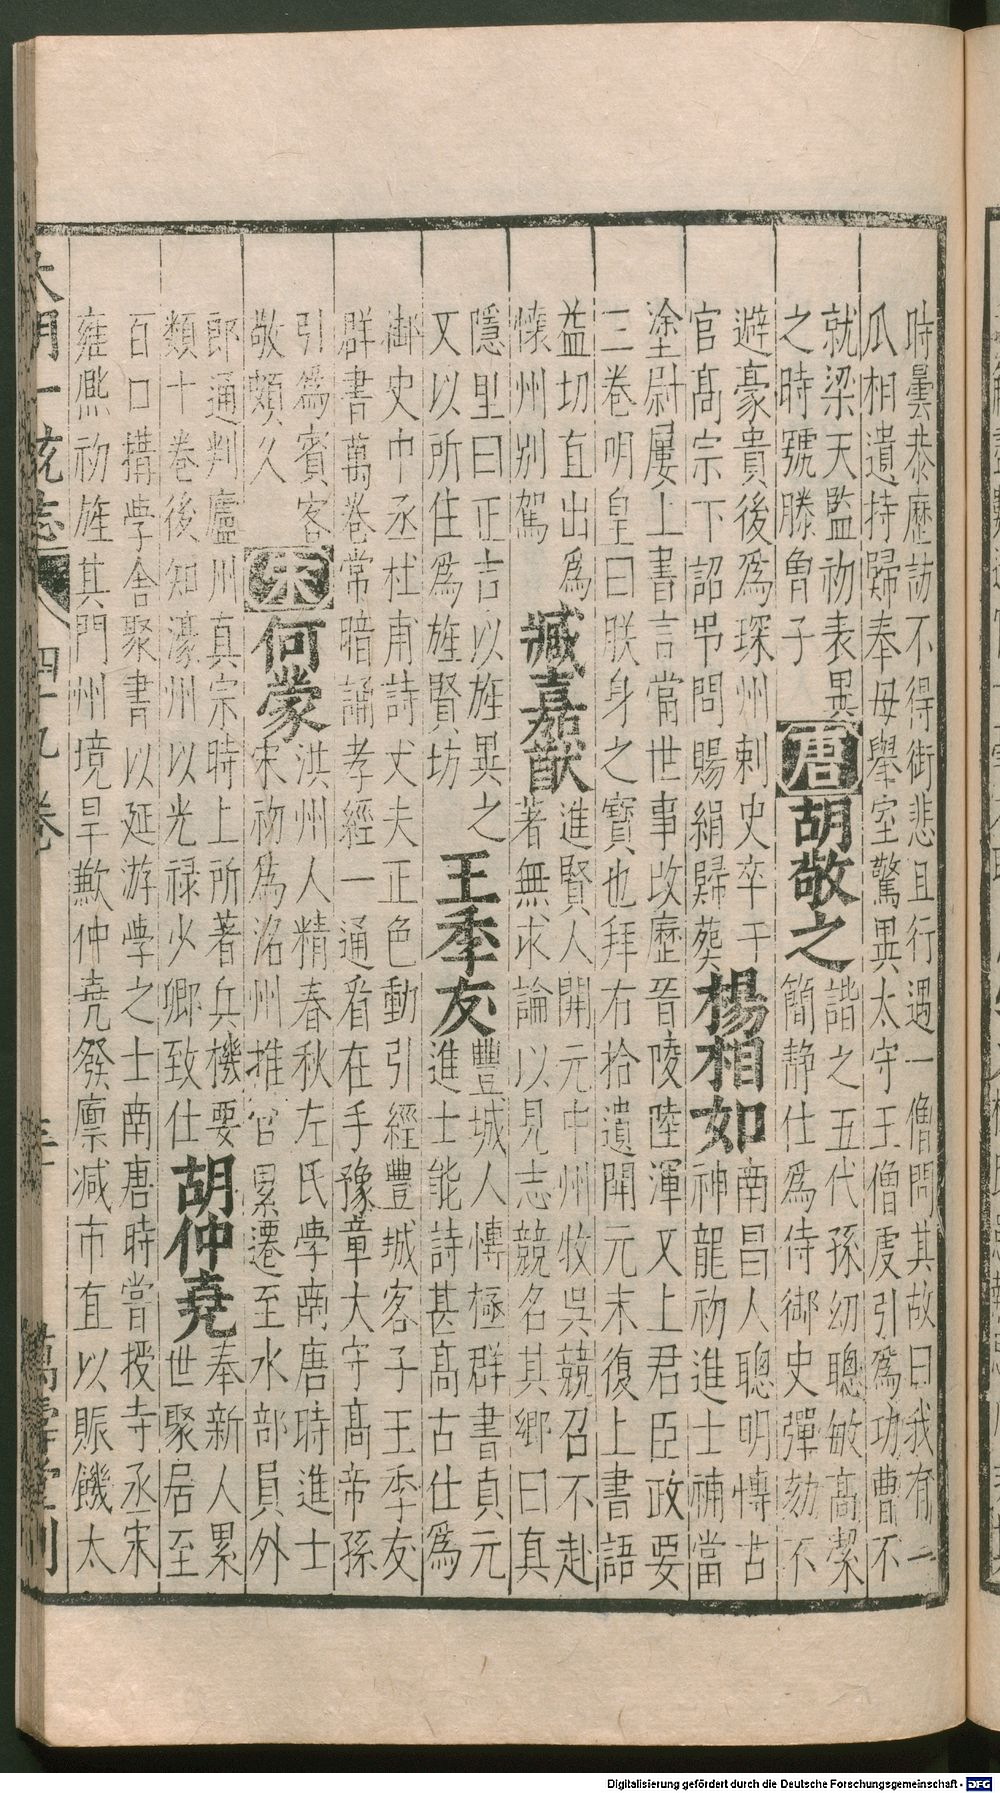 時曇恭歷訪不得銜悲且行遇一僧問其故曰我有一
瓜相遺持歸奉母舉室驚異太守王僧虔引爲功曹不
就梁天監初表異唐胡敬之諧之五代孫幼聰敏高潔
之時號滕曾子簡静仕爲侍御史彈劾不
避豪貴後爲琛州剌史卒于楊相如南昌人聰明慱古
官高宗下詔弔問賜絹歸葬神龍初進士補當
塗尉屢上書言當世事攺歷晉陵陸渾又上君臣政要
三卷明皇曰朕身之寳也拜右拾遺開元末復上書語
益切直出爲臧嘉猷進賢人開元中州牧呉競召不赴
懷州别駕著無求論以見志競名其鄉曰真
隱里曰正吉以旌異之王季友豐城人慱極群書真元
又以所住爲旌賢坊進士能詩甚高古仕爲
御史中丞杜甫詩丈夫正色動引經豐城客子王季友
群書萬卷常暗誦孝經一通看在手豫章大守高帝孫
引爲賓客宋何蒙洪州人精春秋左氏學南唐時進士
敬頗久宋初爲洺州推官累遷至水部員外
郎通判廬州真宗時上所著兵機要胡仲堯奉新人累
類十卷後知濠州以光禄少卿致仕世聚居至
百口搆學舍聚書以延游學之士南唐時嘗授寺丞宋
雍熈初旌其門州境旱歉仲堯發廪減市直以賑饑太
大明一統志 四十九卷 萬壽堂刊
Digitalisierung gefördert durch die Deutsche Forschungsgemeinschaft - DFG